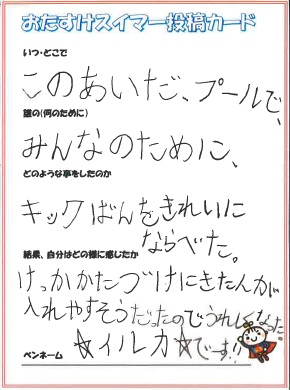 おたすけスイマー投稿カード
いつ・どこで
このあいだ、プールで、
誰の(何のために)
みんなのために、
どのような事をしたのか
キックばんをきれいに
ならべた。
結果、自分はどの様に感じたか
けっかかたづけにきた人が
入れやすそうだったのでうれしくなった。
ペンネーム
☆イルカ☆です!!